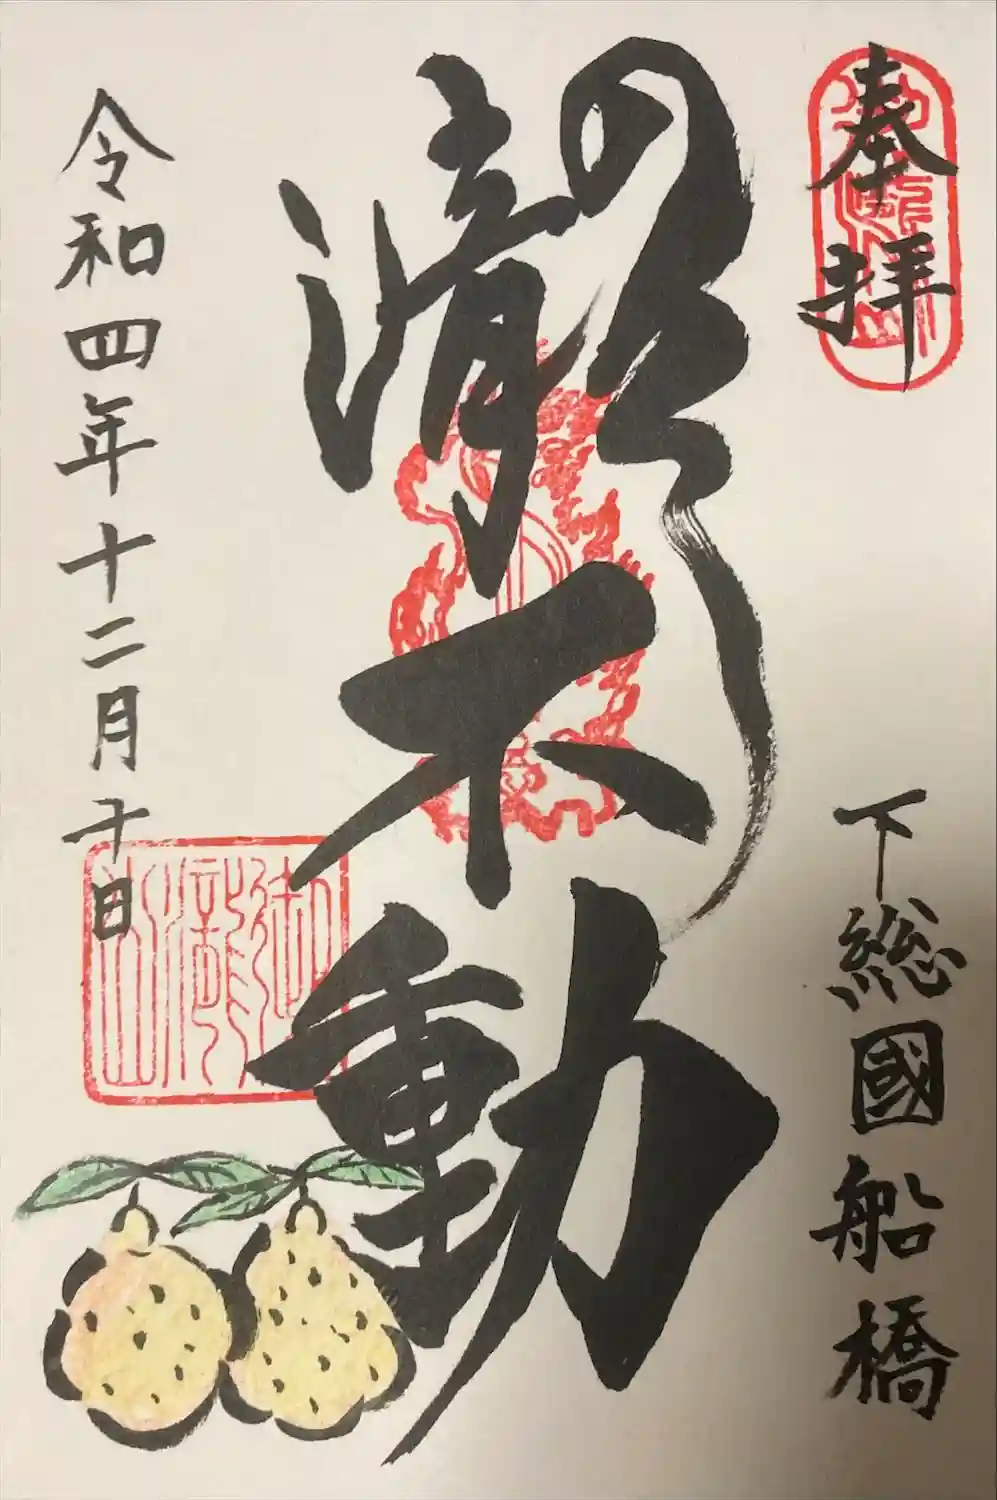 奉拝
下総國船橋
瀧不動
令和四年十二月十日
御瀧山